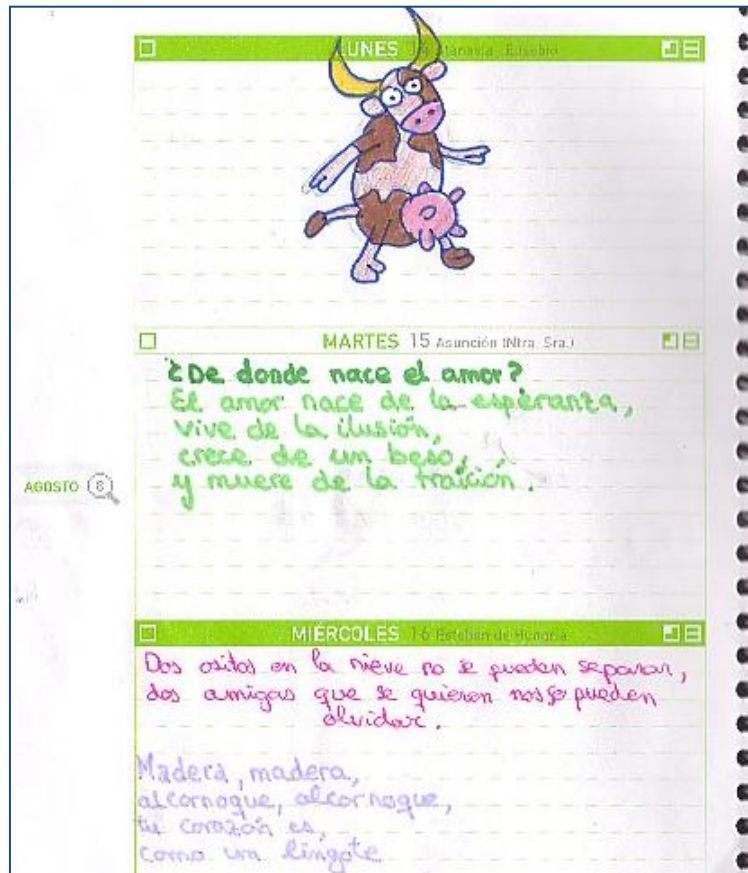 LUNES 14 Atanasia - Eusebio
MARTES 15 Asunción (Ntra. Sra.)
¿De donde nace el amor?
El amor nace de la esperanza,
vive de la ilusión,
crece de un beso,
y muere de la traición.
AGOSTO 8
MIÉRCOLES 16 Esteban de Hungría
Dos ositos en la nieve no se pueden separar,
dos amigas que se quieren no se pueden
olvidar.
Madera, madera,
alcornoque, alcornoque,
tu corazón es,
como un lingote